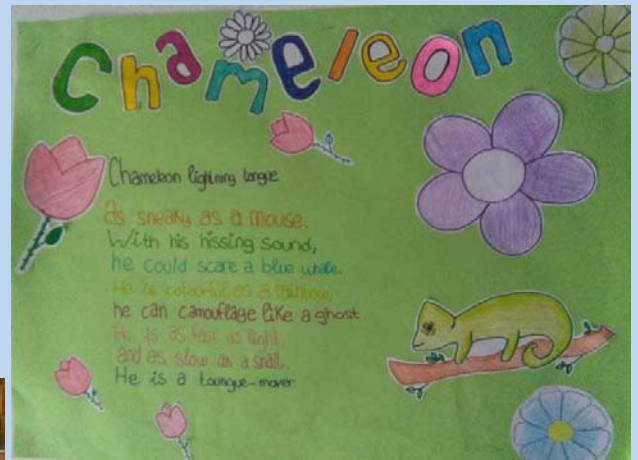 Chameleon
Chameleon lightning tongue
as sneaky as a mouse.
With his hissing sound,
he could scare a blue whale.
He is colourful as a rainbow,
he can camouflage like a ghost
He is as fast as light,
and as slow as a snail.
He is a toungue-mover